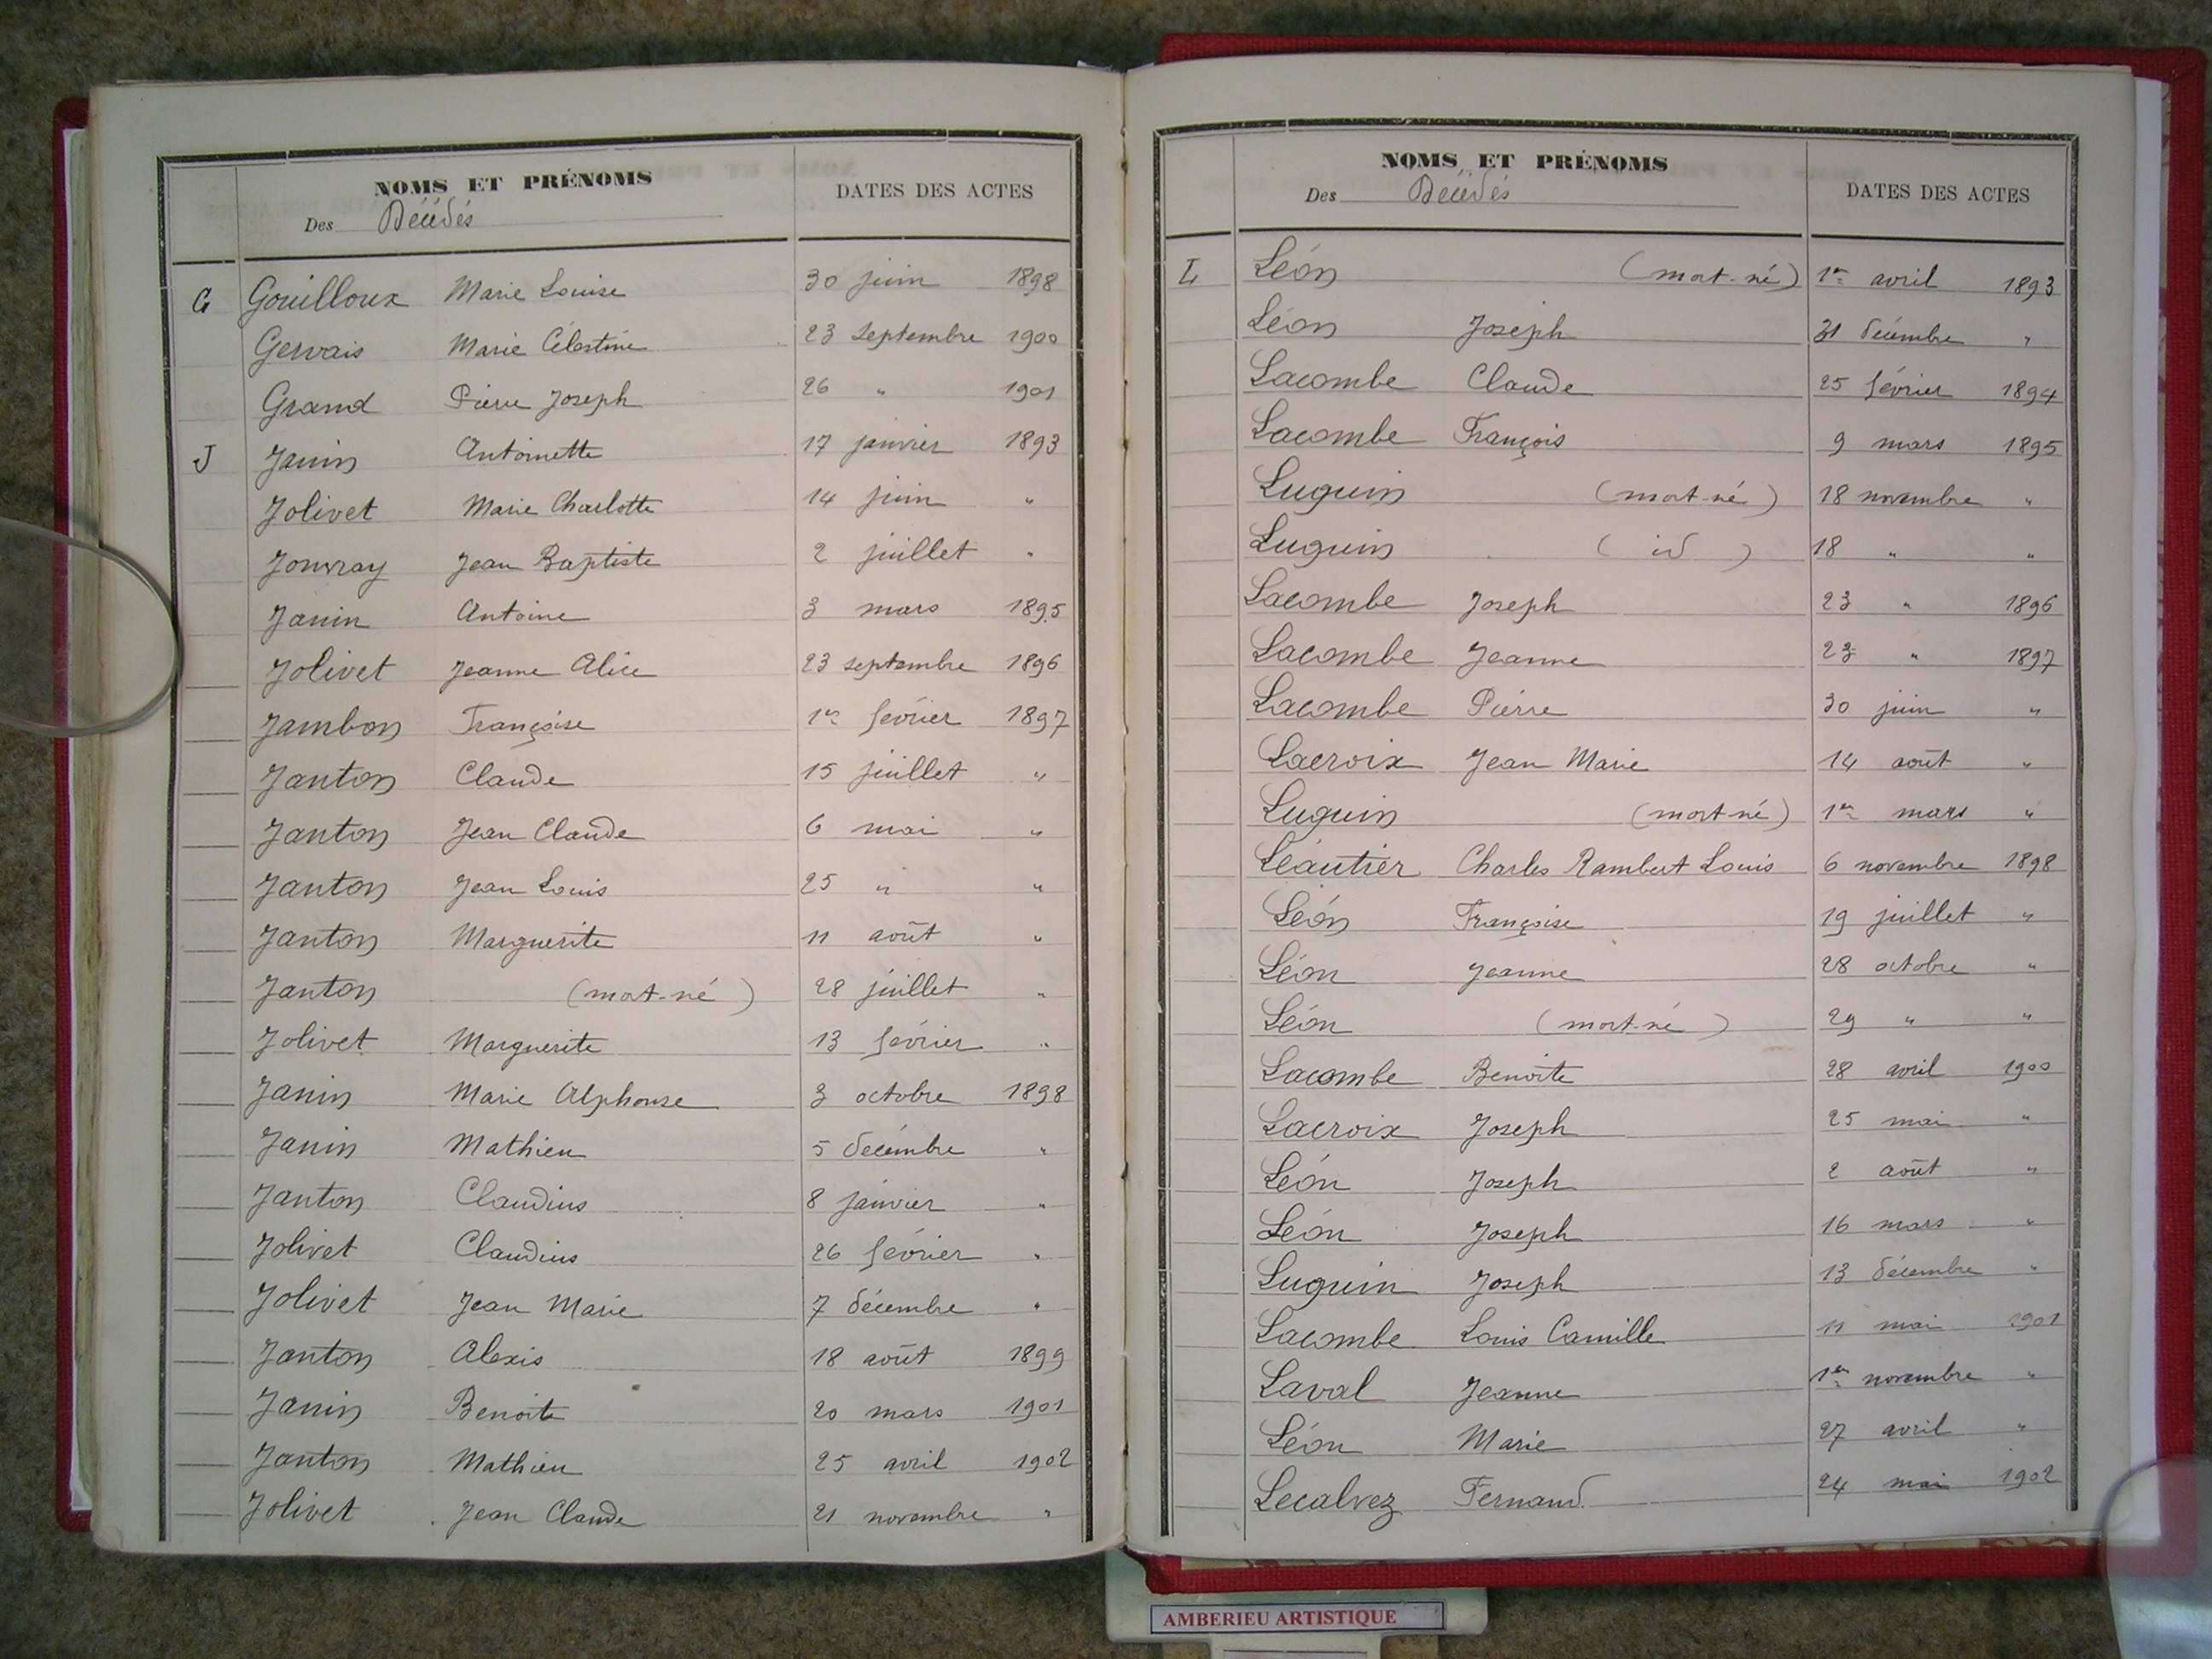 NOMS ET PRÉNOMS
Des Décédés
DATES DES ACTES
G Gouilloux Marie Louise 30 juin 1898
Gervais Marie Célestine 23 Septembre 1900
Grand Pierre Joseph 26 " 1901
J Janin Antoinette 17 janvier 1893
Jolivet Marie Charlotte 14 juin "
Jouvray Jean Baptiste 2 juillet "
Janin Antoine 3 mars 1895
Jolivet Jeanne Alice 23 septembre 1896
Jambon Françoise 1er février 1897
Janton Claude 15 juillet "
Janton Jean Claude 6 mai "
Janton Jean Louis 25 " "
Janton Marguerite 11 août "
Janton (mort-né) 28 juillet "
Jolivet Marguerite 13 février "
Janin Marie Alphonse 3 octobre 1898
Janin Mathieu 5 décembre "
Janton Claudius 8 janvier "
Jolivet Claudius 26 février "
Jolivet Jean Marie 7 décembre "
Janton Alexis 18 août 1899
Janin Benoite 20 mars 1901
Janton Mathieu 25 avril 1902
Jolivet Jean Claude 21 novembre "
NOMS ET PRÉNOMS
Des Décédés
DATES DES ACTES
L Léon (mort-né) 1er avril 1893
Léon Joseph 31 décembre "
Lacombe Claude 25 février 1894
Lacombe François 9 mars 1895
Luguin (mort-né) 18 novembre "
Luguin (id) 18 " "
Lacombe Joseph 23 " 1896
Lacombe Jeanne 23 " 1897
Lacombe Pierre 30 juin "
Lacroix Jean Marie 14 août "
Luguin (mort-né) 1er mars "
Léautier Charles Rambert Louis 6 novembre 1898
Léon Françoise 19 juillet "
Léon Jeanne 28 octobre "
Léon (mort-né) 29 " "
Lacombe Benoite 28 avril 1900
Lacroix Joseph 25 mai "
Léon Joseph 2 août "
Léon Joseph 16 mars "
Luguin Joseph 13 décembre "
Lacombe Louis Camille 11 mai 1901
Laval Jeanne 1er novembre "
Léon Marie 27 avril "
Lecalvez Fernand 24 mai 1902
AMBERIEU ARTISTIQUE